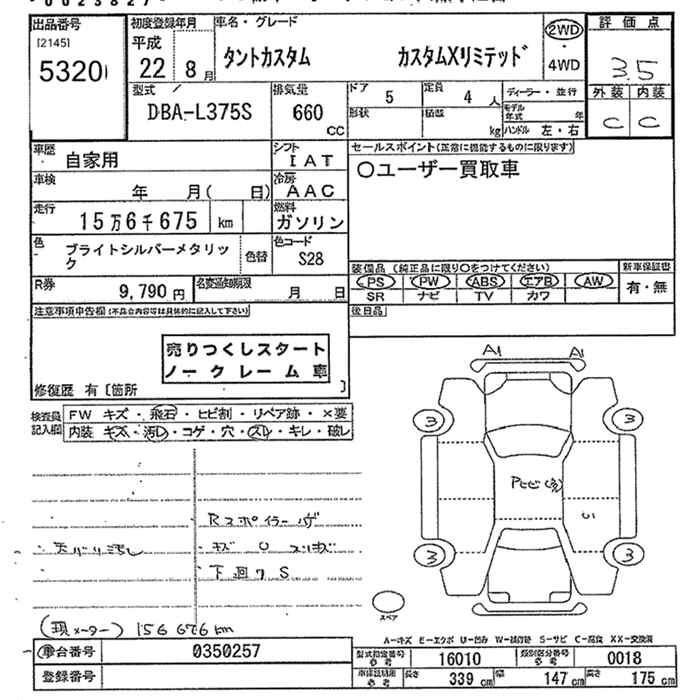 出品番号
[2145]
5320
初度登録年月
平成
22 8月
車名・グレード
タントカスタム カスタムXリミテッド
2WD
・
4WD
評価点
3.5
外装 内装
C C
型式
DBA-L375S
排気量
660
CC
ドア
5
定員
4 人
形状
積載
kg
ディーラー・並行
モデル年式 年
ハンドル 左・右
車歴
自家用
シフト
IAT
車検
年 月( 日)
冷房
AAC
走行
15万6千675 km
燃料
ガソリン
色
ブライトシルバーメタリック
色替
色コード
S28
R券
9,790 円
名変通知期限
月 日
セールスポイント(正常に機能するものに限ります)
〇ユーザー買取車
装備品 (純正品に限り〇をつけてください)
PS PW ABS エアB AW
SR ナビ TV カワ
新車保証書
有・無
注意事項申告欄(不具合内容等は具体的に記入して下さい)
後日品
売りつくしスタート
ノークレーム車
修復歴 有〔箇所 〕
検査員
記入欄
FW キズ・飛石・ヒビ割・リペア跡・×要
内装 キズ・汚レ・コゲ・穴・スレ・キレ・破レ
A1 A1
3 3
3 3
Rスポイラーハゲ
キズ U スリキズ
下回りS
天バリ汚レ
(現メーター) 156676km
スペア
A-キズ E-エクボ U-凹み W-補修跡 S-サビ C-腐食 XX-交換済
車台番号
0350257
登録番号
型式指定番号
参考
16010
類別区分番号
参考
0018
車庫証明用
参考
長さ 339 cm 幅 147 cm 高さ 175 cm